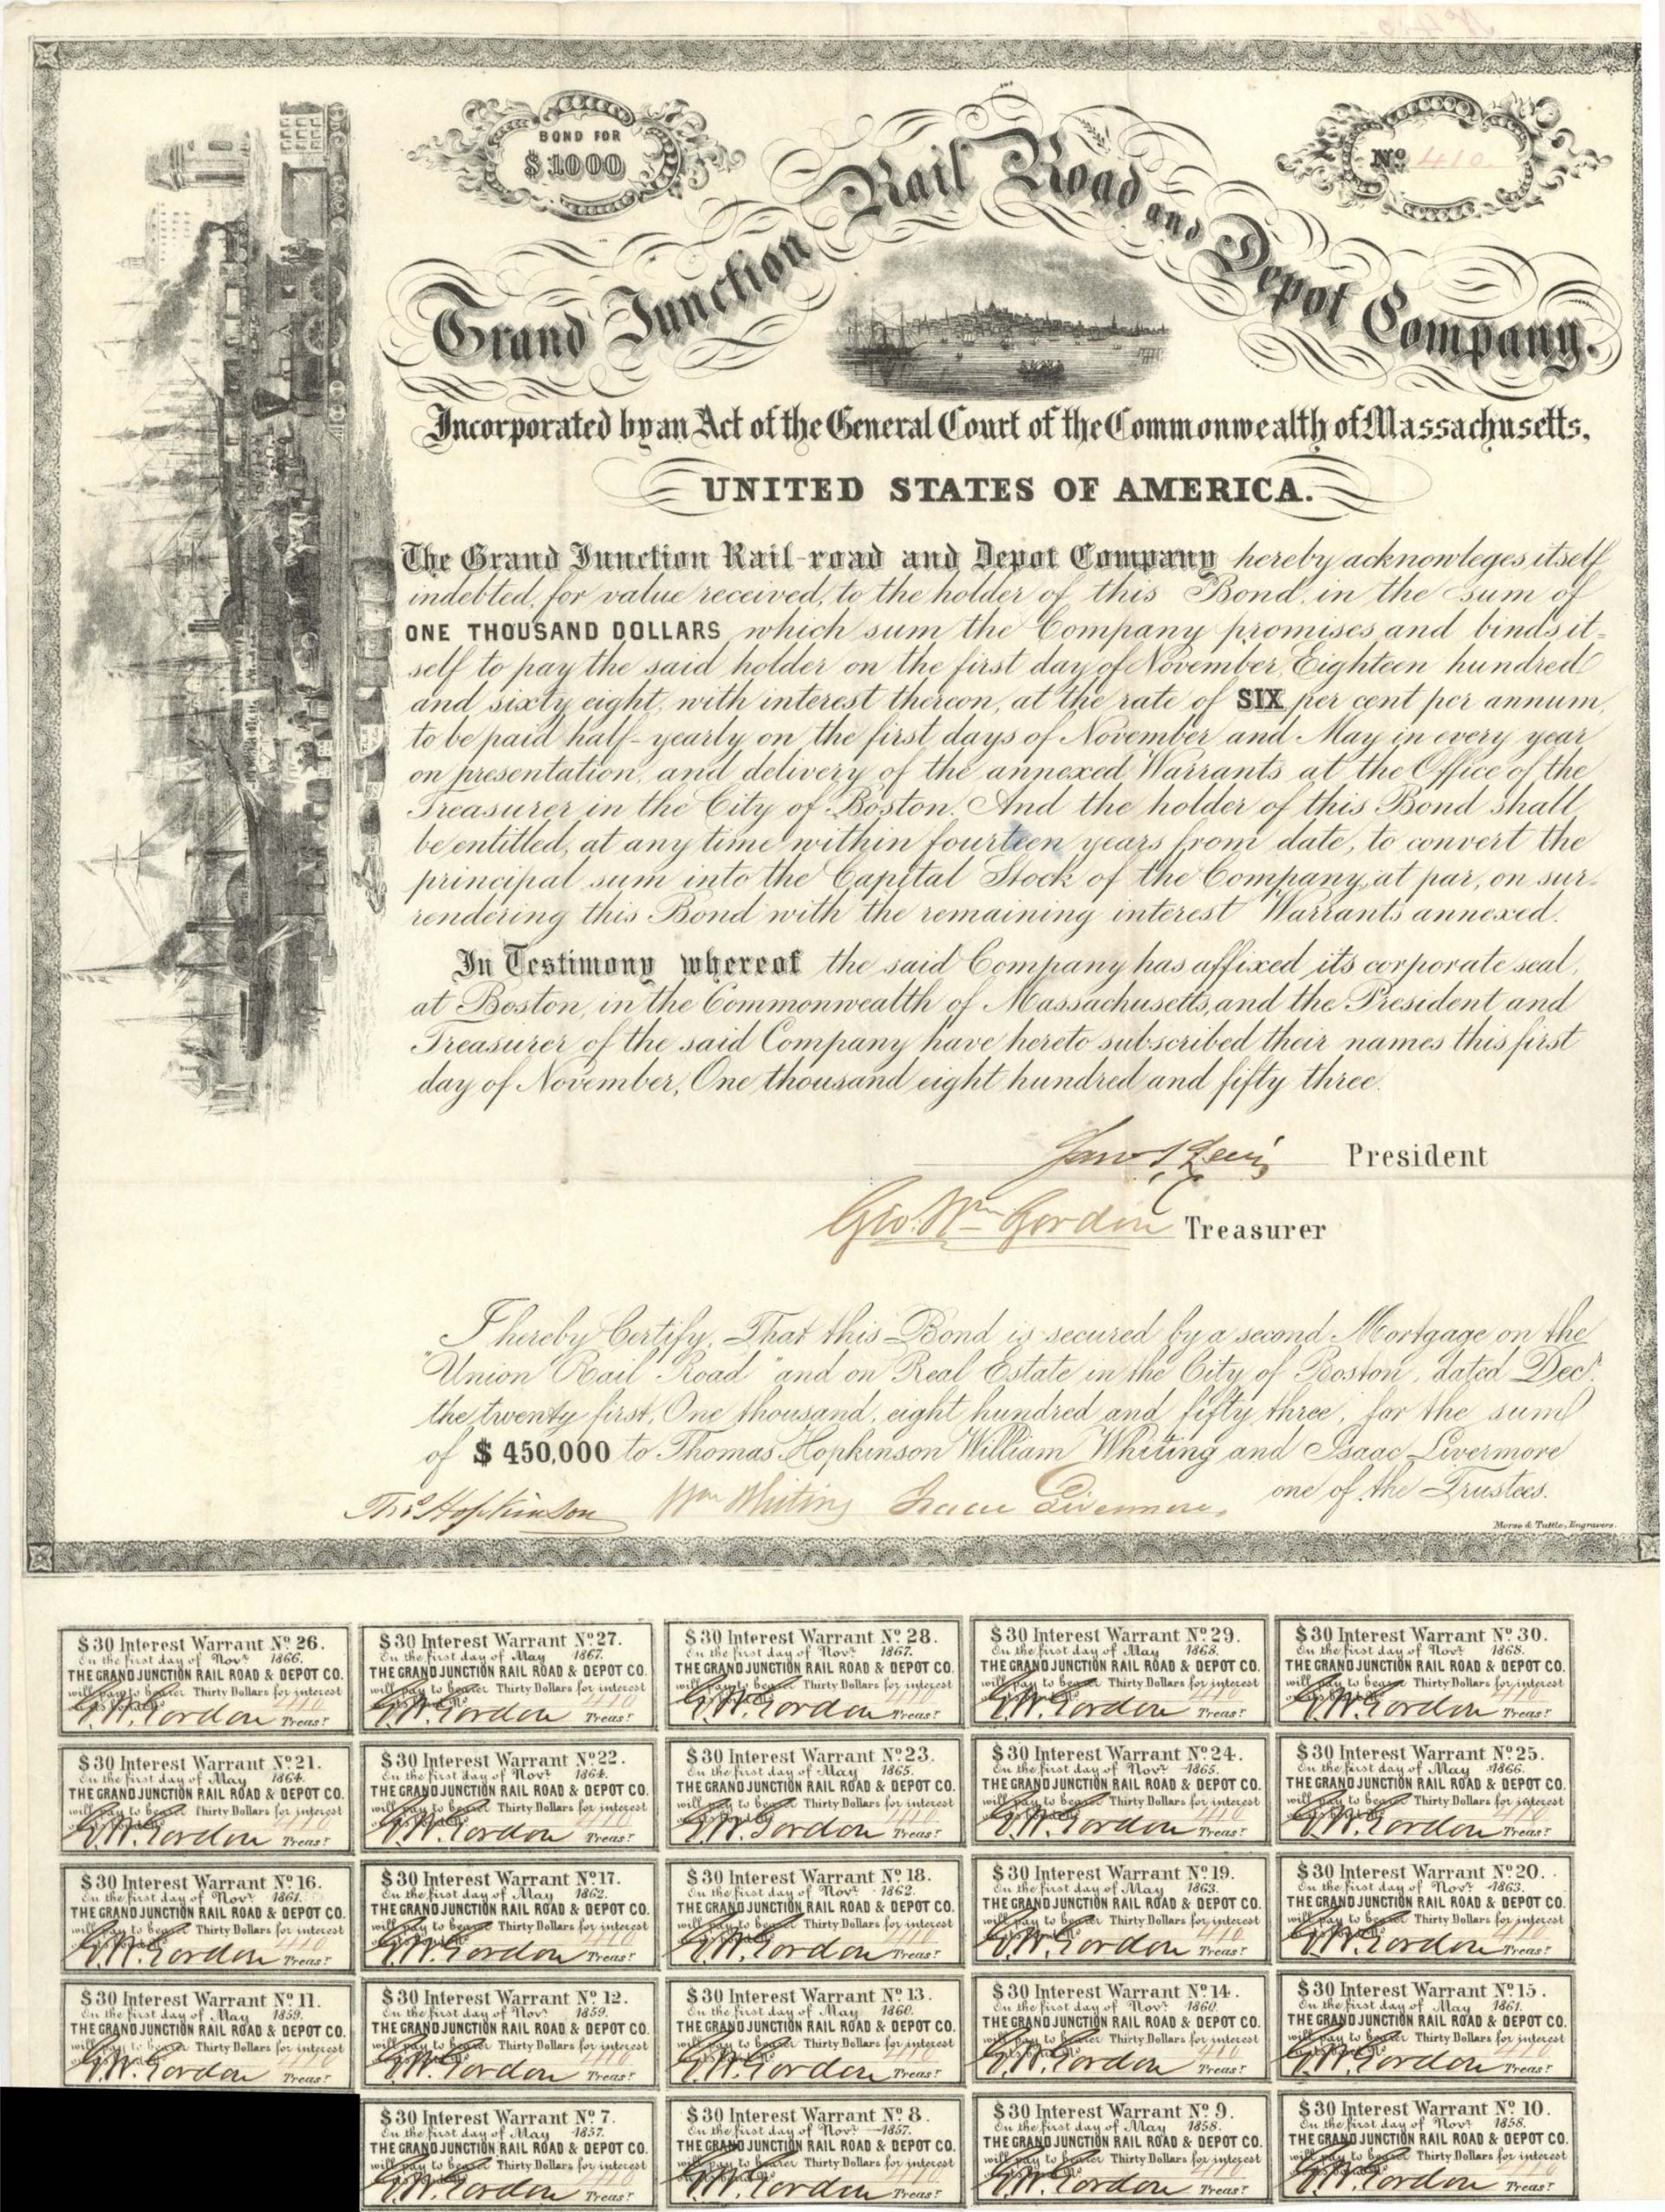 BOND FOR
$1000
Nº 410
Grand Junction Rail Road and Depot Company.
Incorporated by an Act of the General Court of the Commonwealth of Massachusetts,
UNITED STATES OF AMERICA.
The Grand Junction Rail-road and Depot Company hereby acknowleges itself
indebted, for value received, to the holder of this Bond, in the sum of
ONE THOUSAND DOLLARS which sum the Company promises and binds it-
self to pay the said holder on the first day of November, Eighteen hundred
and sixty eight, with interest thereon, at the rate of SIX per cent per annum,
to be paid half-yearly on the first days of November and May in every year
on presentation, and delivery of the annexed Warrants at the Office of the
Treasurer in the City of Boston. And the holder of this Bond shall
be entitled, at any time within fourteen years from date, to convert the
principal sum into the Capital Stock of the Company, at par, on sur-
rendering this Bond with the remaining interest Warrants annexed.
In Testimony whereof the said Company has affixed its corporate seal,
at Boston, in the Commonwealth of Massachusetts, and the President and
Treasurer of the said Company have hereto subscribed their names this first
day of November, One thousand eight hundred and fifty three.
President
Geo. Wm Gordon Treasurer
I hereby Certify, That this Bond is secured by a second Mortgage on the
"Union Rail Road" and on Real Estate in the City of Boston, dated Decr.
the twenty first, One thousand, eight hundred and fifty three, for the sum
of $450,000 to Thomas Hopkinson William Whiting and Isaac Livermore
one of the Trustees.
Thos Hopkinson Wm Whiting Isaac Livermore,
Morse & Tuttle, Engravers.
$30 Interest Warrant Nº 26.
On the first day of Novr 1866.
THE GRAND JUNCTION RAIL ROAD & DEPOT CO.
will pay to bearer Thirty Dollars for interest
410
G.W. Gordon Treasr
$30 Interest Warrant Nº 27.
On the first day of May 1867.
THE GRAND JUNCTION RAIL ROAD & DEPOT CO.
will pay to bearer Thirty Dollars for interest
410
G.W. Gordon Treasr
$30 Interest Warrant Nº 28.
On the first day of Novr 1867.
THE GRAND JUNCTION RAIL ROAD & DEPOT CO.
will pay to bearer Thirty Dollars for interest
410
G.W. Gordon Treasr
$30 Interest Warrant Nº 29.
On the first day of May 1868.
THE GRAND JUNCTION RAIL ROAD & DEPOT CO.
will pay to bearer Thirty Dollars for interest
410
G.W. Gordon Treasr
$30 Interest Warrant Nº 30.
On the first day of Novr 1868.
THE GRAND JUNCTION RAIL ROAD & DEPOT CO.
will pay to bearer Thirty Dollars for interest
410
G.W. Gordon Treasr
$30 Interest Warrant Nº 21.
On the first day of May 1864.
THE GRAND JUNCTION RAIL ROAD & DEPOT CO.
will pay to bearer Thirty Dollars for interest
410
G.W. Gordon Treasr
$30 Interest Warrant Nº 22.
On the first day of Novr 1864.
THE GRAND JUNCTION RAIL ROAD & DEPOT CO.
will pay to bearer Thirty Dollars for interest
410
G.W. Gordon Treasr
$30 Interest Warrant Nº 23.
On the first day of May 1865.
THE GRAND JUNCTION RAIL ROAD & DEPOT CO.
will pay to bearer Thirty Dollars for interest
410
G.W. Gordon Treasr
$30 Interest Warrant Nº 24.
On the first day of Novr 1865.
THE GRAND JUNCTION RAIL ROAD & DEPOT CO.
will pay to bearer Thirty Dollars for interest
410
G.W. Gordon Treasr
$30 Interest Warrant Nº 25.
On the first day of May 1866.
THE GRAND JUNCTION RAIL ROAD & DEPOT CO.
will pay to bearer Thirty Dollars for interest
410
G.W. Gordon Treasr
$30 Interest Warrant Nº 16.
On the first day of Novr 1861.
THE GRAND JUNCTION RAIL ROAD & DEPOT CO.
will pay to bearer Thirty Dollars for interest
410
G.W. Gordon Treasr
$30 Interest Warrant Nº 17.
On the first day of May 1862.
THE GRAND JUNCTION RAIL ROAD & DEPOT CO.
will pay to bearer Thirty Dollars for interest
410
G.W. Gordon Treasr
$30 Interest Warrant Nº 18.
On the first day of Novr 1862.
THE GRAND JUNCTION RAIL ROAD & DEPOT CO.
will pay to bearer Thirty Dollars for interest
410
G.W. Gordon Treasr
$30 Interest Warrant Nº 19.
On the first day of May 1863.
THE GRAND JUNCTION RAIL ROAD & DEPOT CO.
will pay to bearer Thirty Dollars for interest
410
G.W. Gordon Treasr
$30 Interest Warrant Nº 20.
On the first day of Novr 1863.
THE GRAND JUNCTION RAIL ROAD & DEPOT CO.
will pay to bearer Thirty Dollars for interest
410
G.W. Gordon Treasr
$30 Interest Warrant Nº 11.
On the first day of May 1859.
THE GRAND JUNCTION RAIL ROAD & DEPOT CO.
will pay to bearer Thirty Dollars for interest
410
G.W. Gordon Treasr
$30 Interest Warrant Nº 12.
On the first day of Novr 1859.
THE GRAND JUNCTION RAIL ROAD & DEPOT CO.
will pay to bearer Thirty Dollars for interest
410
G.W. Gordon Treasr
$30 Interest Warrant Nº 13.
On the first day of May 1860.
THE GRAND JUNCTION RAIL ROAD & DEPOT CO.
will pay to bearer Thirty Dollars for interest
410
G.W. Gordon Treasr
$30 Interest Warrant Nº 14.
On the first day of Novr 1860.
THE GRAND JUNCTION RAIL ROAD & DEPOT CO.
will pay to bearer Thirty Dollars for interest
410
G.W. Gordon Treasr
$30 Interest Warrant Nº 15.
On the first day of May 1861.
THE GRAND JUNCTION RAIL ROAD & DEPOT CO.
will pay to bearer Thirty Dollars for interest
410
G.W. Gordon Treasr
$30 Interest Warrant Nº 7.
On the first day of May 1857.
THE GRAND JUNCTION RAIL ROAD & DEPOT CO.
will pay to bearer Thirty Dollars for interest
410
G.W. Gordon Treasr
$30 Interest Warrant Nº 8.
On the first day of Novr 1857.
THE GRAND JUNCTION RAIL ROAD & DEPOT CO.
will pay to bearer Thirty Dollars for interest
410
G.W. Gordon Treasr
$30 Interest Warrant Nº 9.
On the first day of May 1858.
THE GRAND JUNCTION RAIL ROAD & DEPOT CO.
will pay to bearer Thirty Dollars for interest
410
G.W. Gordon Treasr
$30 Interest Warrant Nº 10.
On the first day of Novr 1858.
THE GRAND JUNCTION RAIL ROAD & DEPOT CO.
will pay to bearer Thirty Dollars for interest
410
G.W. Gordon Treasr